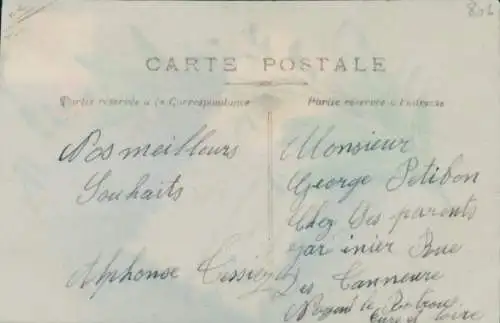 806
CARTE POSTALE
Partie réservée à la Correspondance
Partie réservée à l'adresse
Nos meilleurs
Souhaits
Alphonse Tessier
Monsieur
George Petibon
Chez Ses parents
jar inier Rue
Des Tanneure
Nogent le Rotrou
Eure et Loire